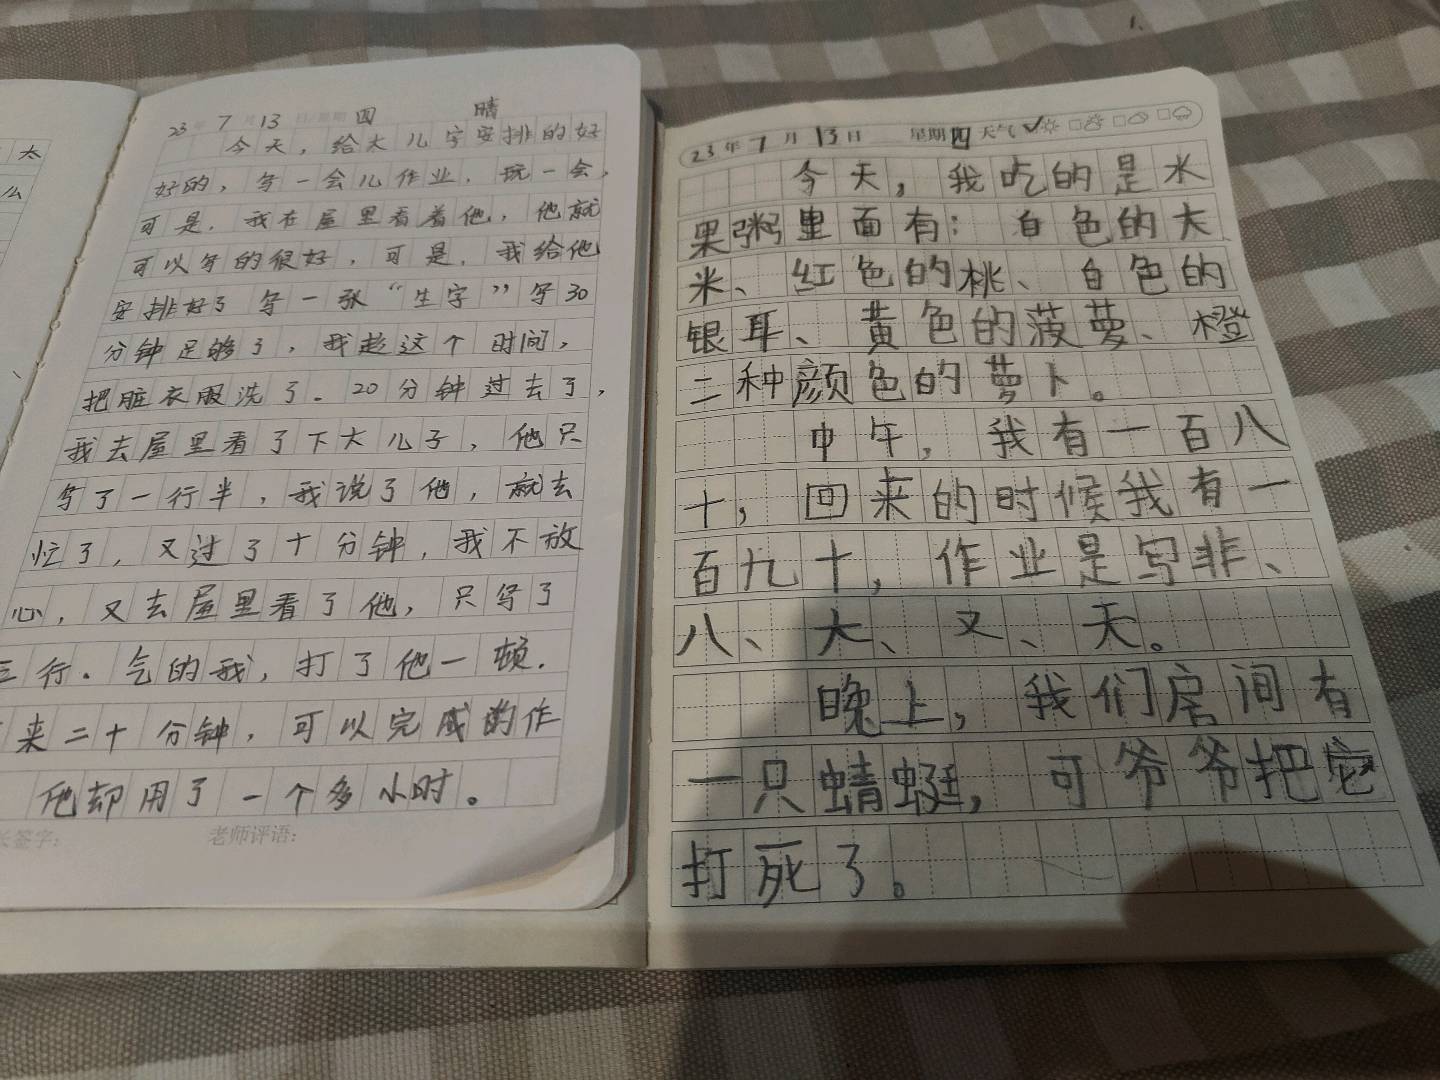 太
么
23年 7月 13日/星期 四 晴
今天，给大儿字安排的好
好的，写一会儿作业，玩一会，
可是，我在屋里看着他，他就
可以写的很好，可是，我给他
安排好了写一张“生字”写30
分钟足够了，我趁这个时间，
把脏衣服洗了。20分钟过去了，
我去屋里看了下大儿子，他只
写了一行半，我说了他，就去
忙了，又过了十分钟，我不放
心，又去屋里看了他，只写了
三行。气的我，打了他一顿.
来二十分钟，可以完成的作
他却用了一个多小时。
长签字：
老师评语：
23年 7月 13日 星期四 天气✓
今天，我吃的是水
果粥里面有：白色的大
米、红色的桃、白色的
银耳、黄色的菠萝、橙
二种颜色的萝卜。
中午，我有一百八
十，回来的时候我有一
百九十，作业是写非、
八、大、又、天。
晚上，我们房间有
一只蜻蜓，可爷爷把它
打死了。